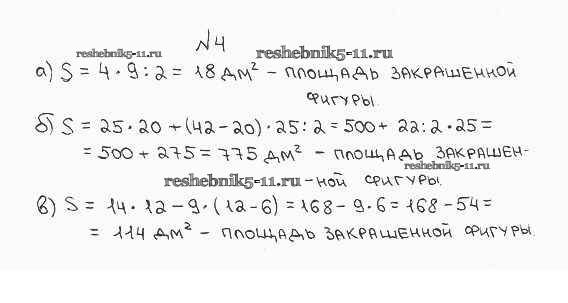 №4
reshebnik5-11.ru reshebnik5-11.ru
а) S = 4 • 9 : 2 = 18 дм² – площадь закрашенной
фигуры.
б) S = 25 • 20 + (42 – 20) • 25 : 2 = 500 + 22 : 2 • 25 =
= 500 + 275 = 775 дм² – площадь закрашен-
reshebnik5-11.ru
reshebnik5-11.ru – ной фигуры.
в) S = 14 • 12 – 9 • (12 – 6) = 168 – 9 • 6 = 168 – 54 =
= 114 дм² – площадь закрашенной фигуры.